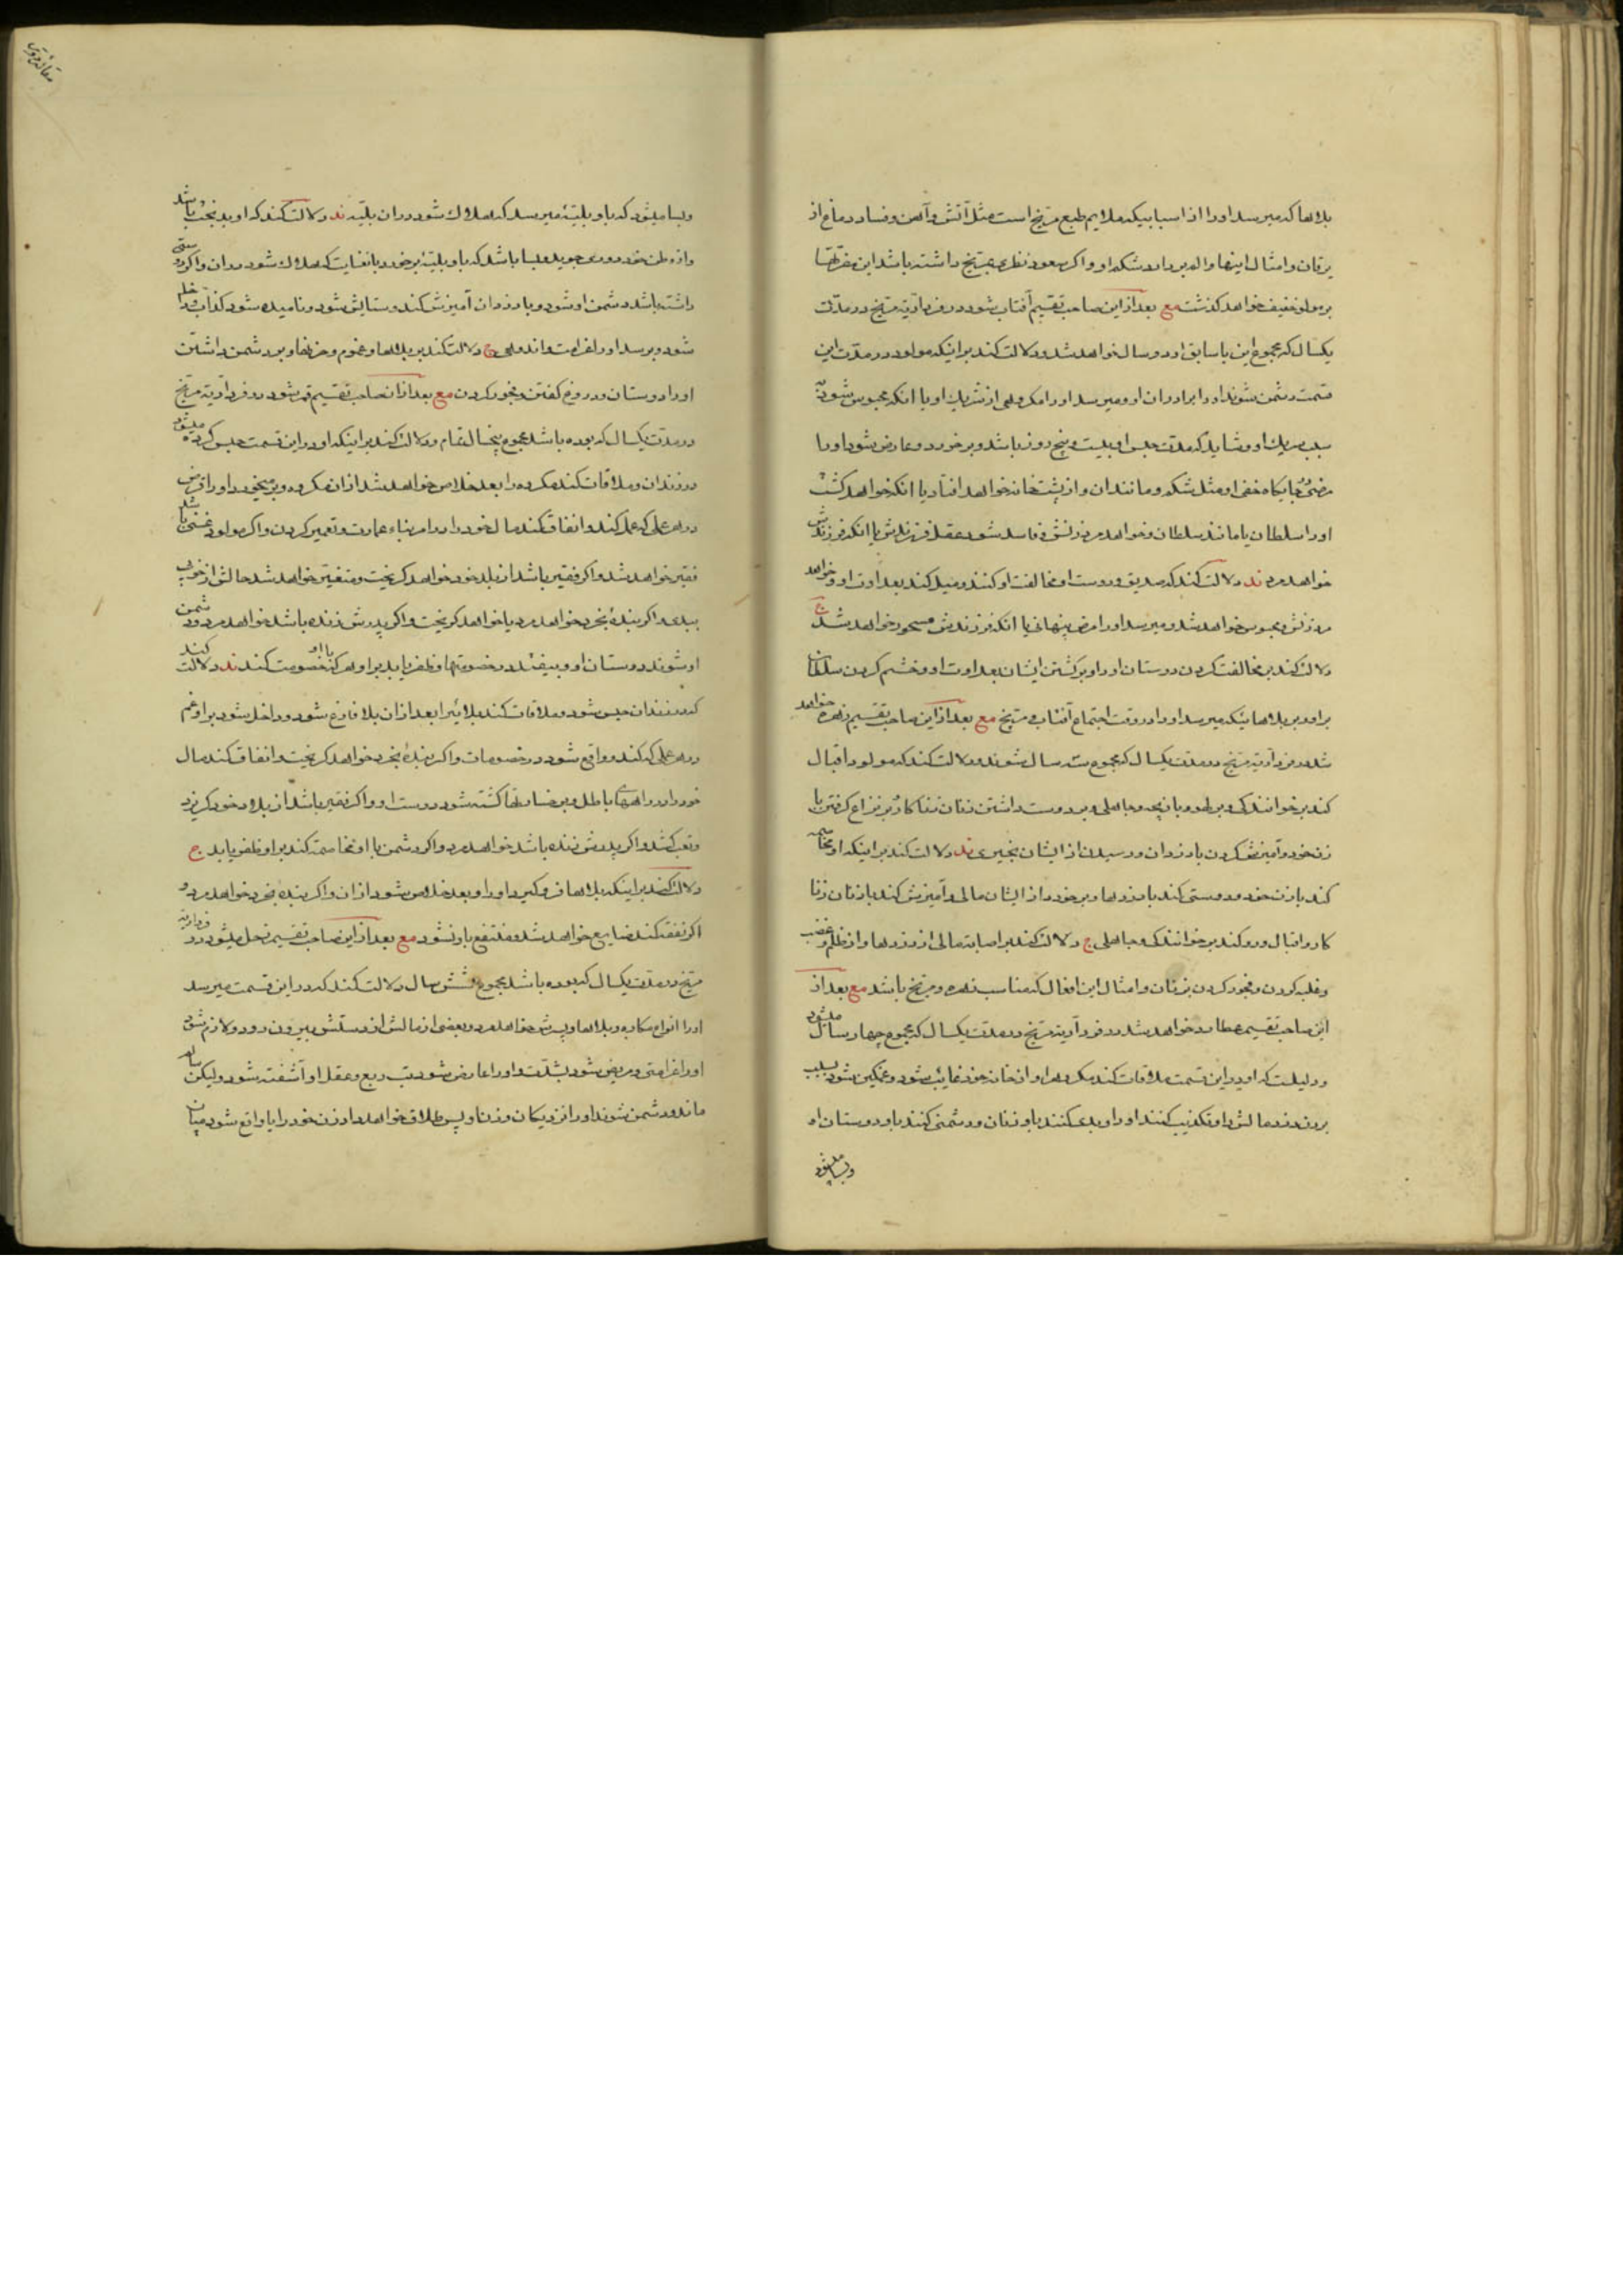 بلاها که میرسد او را از اسبابیکه ملایم طبع مریخ است مثل آتش و آهن و فساد دماغ از
یرقان و امثال اینها و اگر سعود نظری بمریخ داشته باشد این
بر مولود خفیف خواهد گذشت مع بعد از این صاحب تقسیم آفتاب شود در فردآریه مریخ در مدت
یکسال که مجموع این با سابق او دو سال خواهد شد و دلالت کند بر اینکه مولود در مدت این
قسمت دشمن شوند او را برادران او و میرسد او را مکروهی از شریک او یا آنکه محبوس شود
سبب شریک او و شاید که مدت حبس او بیست و پنج روز باشد و برخورد و عارض شود او را
مرضی در جایگاه خفی او مثل شکم و مانند آن و از پشت خانه خواهد افتاد یا آنکه خواهد کشت
او را سلطان یا مانند سلطان و خواهد مرد زنش و فاسد شود عقل فرزندش یا آنکه فرزندش
خواهد مرد ند دلالت کند که صدیق و دوست او مخالفت او کنند و میل کند بعداوت او و خواهد
مرد زنش و محبوس خواهد شد و میرسد او را مرض پنهانی یا آنکه فرزندش مسحور خواهد شد ج
دلالت کند بر مخالفت کردن دوستان او را و برگشتن ایشان بعداوت او و خشم کردن سلطان
بر او و بر بلاهائیکه میرسد او را در وقت اجتماع آفتاب و مریخ مع بعد از این صاحب تقسیم زهره خواهد
شد در فردآریه مریخ در مدت یکسال که مجموع سه سال شوند و دلالت کند که مولود اقبال
کند بر خوانندگی و بر لهو و بازیچه و جاهلی و بر دوست داشتن زنان زناکار و بر نزاع گرفتن با
زن خود و آمیزش کردن با دزدان و رسیدن از ایشان بخیری ند دلالت کند بر اینکه او مخاصمه
کند با زن خود و دوستی کند با دزدها و برخورد از ایشان مالی و آمیزش کند با زنان زنا
کار و اقبال و رو کند بر خوانندگی و جاهلی ج دلالت کند بر اصابت مالی از دزدها و از ظلم و غضب
و غلبه کردن و فجور کردن بزنان و امثال این افعال که مناسب زهره و مریخ باشد مع بعد از
این صاحب تقسیم عطارد خواهد شد در فردآریه مریخ در مدت یکسال که مجموع چهار سال میشود
و دلیلست که او در این قسمت ملاقات کند مکروهی را و از خانه خود غایب شود و غمگین شود بسبب
بردن دزد مالش را و تکذیب کنند او را و بدی کنند باو زنان و دشمنی کنند باو دوستان او
و بسا میشود
و بسا میشود که باو بلیتۀ میرسد که هلاک شود در آن بلیّه ند دلالت کند که او بدبخت باشد
و از وطن خود دوری جوید و بسا باشد که باو بلیتۀ برخورد بآن غایت که هلاک شود در آن و اگر دوستی
داشته باشد دشمن او شود و با دزدان آمیزش کند و ستایش شود و نامیده شود کذاب و داخل
شود و برسد او را غرامت و اندوهی ج دلالت کند بر بلاها و غموم و حزنها و بر دشمن داشتن
او را دوستان و دروغ گفتن و فجور کردن مع بعد از آن صاحب تقسیم قمر شود در فردآریه مریخ
در مدت یکسال که بوده باشد مجموع پنجسال تمام و دلالت کند بر اینکه او در این قسمت حبس کرده میشود
در زندان و ملاقات کند مکروه را بعد خلاص خواهد شد از آن مکروه و برمیخورد او را قرض
در هر عملی که عمل کند و انفاق کند مال خود را در امر بناء عمارت و تعمیر کردن و اگر مولود غنی باشد
فقیر خواهد شد و اگر فقیر باشد از بلد خود خواهد گریخت و متغیر خواهد شد حالش از خوبی
ببدی و اگر بندۀ بخرد خواهد مرد یا خواهد گریخت و اگر پدرش زنده باشد خواهد مرد و دشمن
او شوند دوستان او و بیفتد در خصومتها و ظفر یابد بر او هر که با او خصومت کند ند دلالت کند
که در زندان حبس شود و ملاقات کند بلائیرا بعد از آن بلا فارغ شود و داخل شود بر او غم
در هر عملی که کند و واقع شود در خصومات و اگر بندۀ بخرد خواهد گریخت و انفاق کند مال
خود را در راههای باطل و بر فسادها کشته شود دوست او و اگر فقیر باشد از بلاد خود گریزد
و تعب کشد و اگر پدرش زنده باشد خواهد مرد و اگر دشمن با او مخاصمه کند بر او ظفر یابد ج
دلالت کند بر اینکه بلاها فرو گیرد او را و بعد خلاص شود از آن و اگر بنده بخرد خواهد مرد و
اگر نفقه کند ضایع خواهد شد و منتفع باو نشود مع بعد از این صاحب تقسیم زحل میشود در فردآریه
مریخ در مدت یکسال که بوده باشد مجموع شش سال دلالت کند که در این قسمت میرسد
او را انواع مکاره و بلاها و پسرش خواهد مرد و بعضی از مالش از دستش بیرون رود و لازم شود
او را غرامتی و مریض شود بشدت و او را عارض شود تب ربع و عقل او آشفته شود و لیکن سالم
ماند و دشمن شوند او را نزدیکان و زن او پس طلاق خواهد داد زن خود را یا واقع شود میان